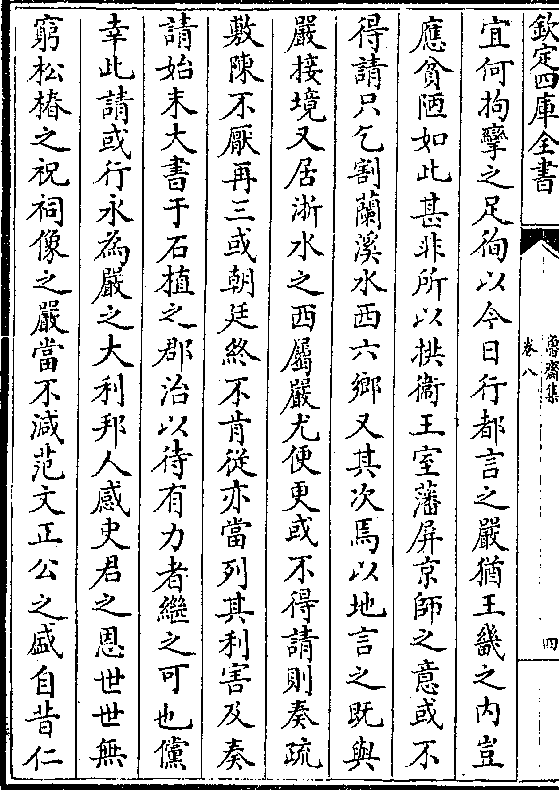 欽定四庫全書
魯齋集
卷八
四
宜何拘攣之足徇以今日行都言之嚴猶王畿之内豈
應貧陋如此甚非所以拱衞王室藩屏京師之意或不
得請只乞割蘭溪水西六鄉又其次焉以地言之既與
嚴接境又居浙水之西屬嚴尤便更或不得請則奏疏
敷陳不厭再三或朝廷終不肯從亦當列其利害及奏
請始末大書于石植之郡治以待有力者繼之可也儻
幸此請或行永為嚴之大利邦人感史君之恩世世無
窮松椿之祝祠像之嚴當不減范文正公之盛自昔仁